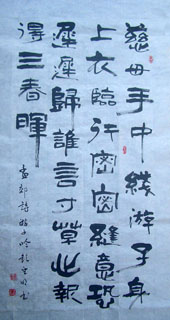 慈母手中線游子身
上衣臨行密密縫意恐
遲遲歸誰言寸草心報
得三春暉
孟郊詩游子吟